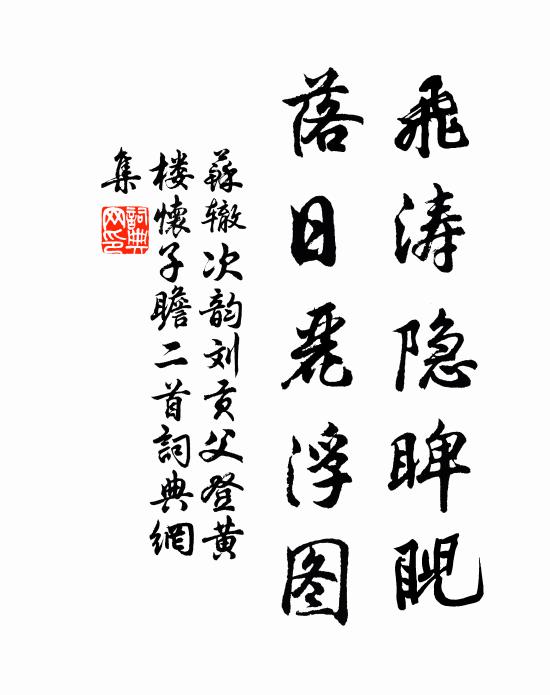 飛涛隐睥睨
落日麗浮图
蘇辙次韵刘贡父登黄
楼懷子瞻二首詞典網
集
詞典网印